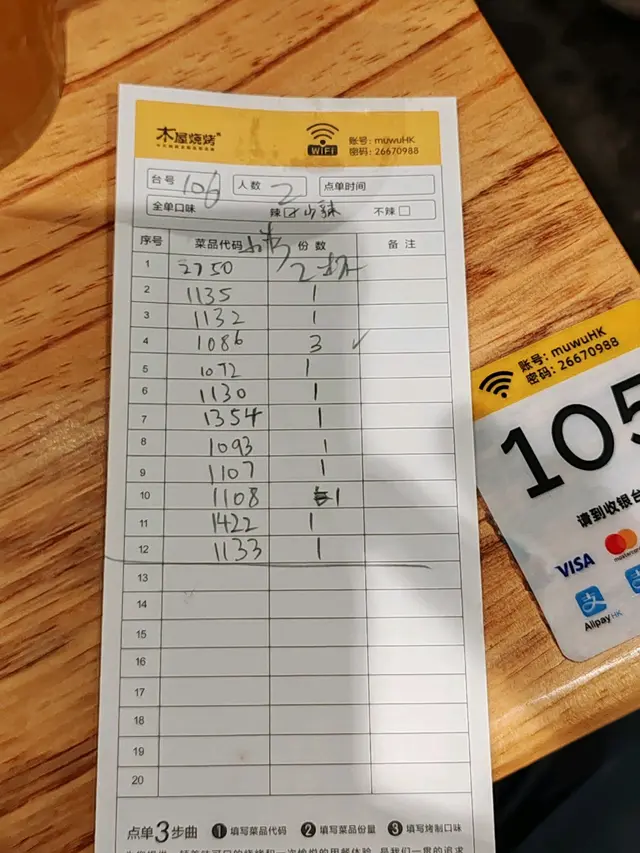 木屋烧烤
WIFI
账号: muwuHK
密码: 26670988
台号 106 人数 2 点单时间
全单口味 辣 小辣 不辣
序号 菜品代码 份数 备注
1 2750 2
2 1135 1
3 1132 1
4 1086 3 ✓
5 1072 1
6 1130 1
7 1354 1
8 1093 1
9 1107 1
10 1108 1
11 1422 1
12 1133 1
13
14
15
16
17
18
19
20
点单3步曲 1 填写菜品代码 2 填写菜品份量 3 填写烤制口味
账号: muwuHK
密码: 26670988
105
请到收银台
VISA
Alipay HK